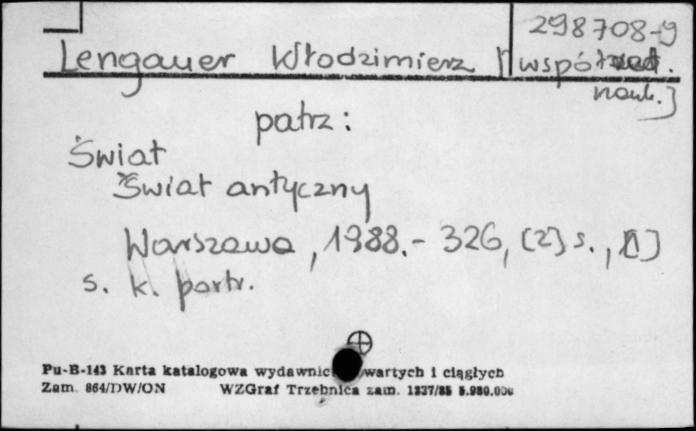 298708-9
Lengauer Włodzimierz [współred.
nauk.]
patrz:
Świat
Świat antyczny
Warszawa, 1988.- 326, [2] s., [1]
s. k. portr.
Pu-B-143 Karta katalogowa wydawnic wartych i ciągłych
Zam. 864/DW/ON WZGraf Trzebnica zam. 1337/85 5.980.000